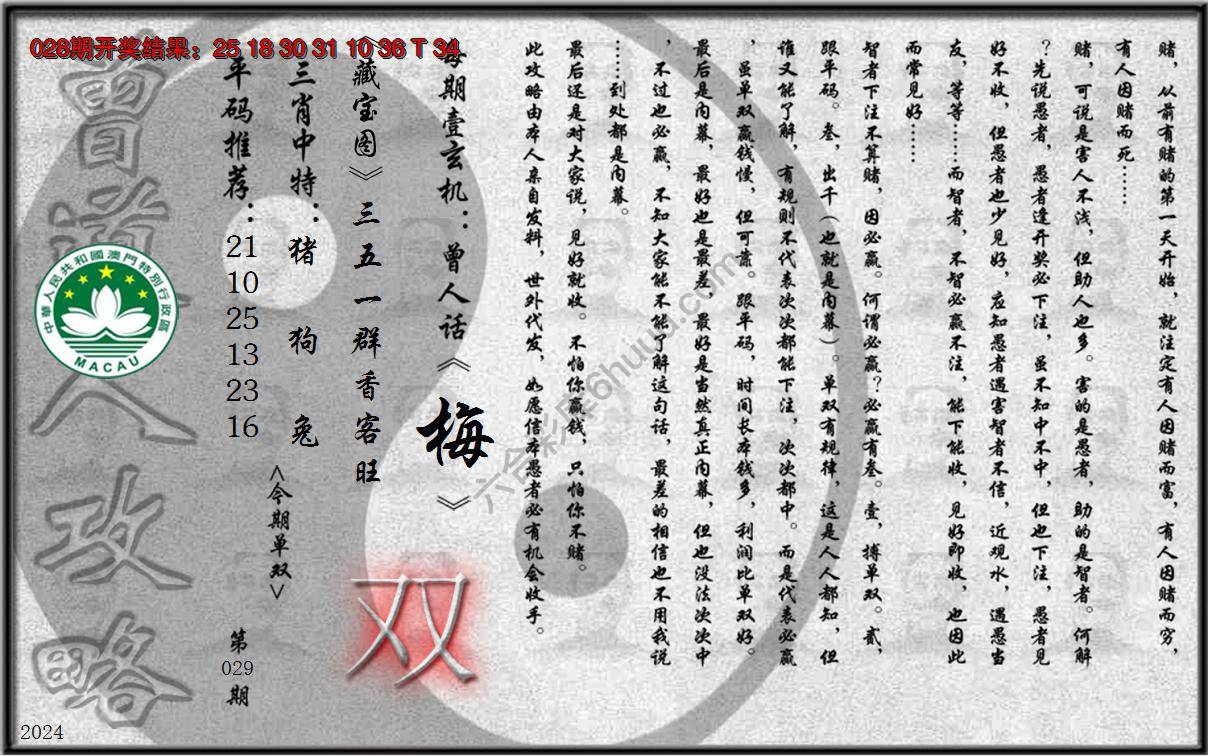 028期开奖结果：25 18 30 31 10 36 T 34
赌，从前有赌的第一天开始，就注定有人因赌而富，有人因赌而穷，
有人因赌而死……
赌，可说是害人不浅，但助人也多。害的是愚者，助的是智者。何解
？先说愚者，愚者逢开奖必下注，虽不知中不中，但也下注，愚者见
好不收，但愚者也少见好，应知愚者遇害智者不信，近观水，遇愚当
友，等等……而智者，不智必赢不注，能下能收，见好即收，也因此
而常见好……
智者下注不算赌，因必赢。何谓必赢？必赢有叁。壹，搏单双。贰，
跟平码。叁，出千（也就是内幕）。单双有规律，这是人人都知，但
谁又能了解，有规则不代表次次都能下注，次次都中。而是代表必赢
，虽单双赢钱慢，但可靠。跟平码，时间长本钱多，利润比单双好。
最后是内幕，最好也是最差，最好是当然真正内幕，但也没法次次中
，不过也必赢，不知大家能不能了解这句话，最差的相信也不用我说
……到处都是内幕。
最后还是对大家说，见好就收。不怕你赢钱，只怕你不赌。
此攻略由本人亲自发料，世外代发，如愿信本愚者必有机会收手。
每期壹玄机：曾人话《梅》
《藏宝图》三五一群香客旺
双
三肖中特：猪 狗 兔
<今期单双>
平码推荐：21 10 25 13 23 16
第029期
曾道人攻略
中華人民共和國澳門特別行政區
MACAU
2024
六合彩库6huuu.com